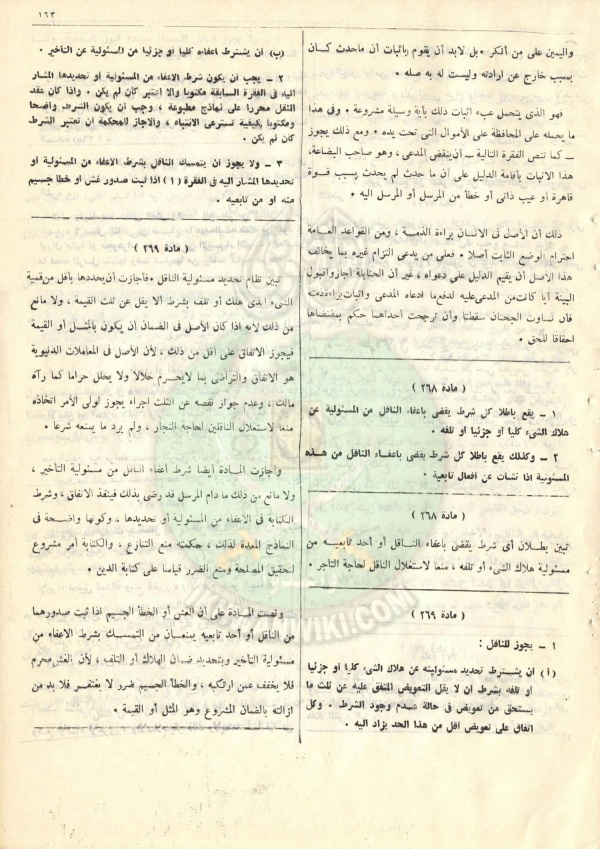 ١٦٣
واليمين على من أنكر ٠ بل لابد أن يقوم باثبات أن ماحدث كان
بسبب خارج عن ارادته وليست له به صله ٠
فهو الذى يتحمل عبء اثبات ذلك بأية وسيلة مشروعة ٠ وفى هذا
ما يحمله على المحافظة على الأموال التى تحت يده ٠ ومع ذلك يجوز
ــ كما تنص الفقرة التالية ــ أن ينقض المدعى ، وهو صاحب البضاعة،
هذا الاثبات بأقامة الدليل على أن ما حدث لم يحدث بسبب قوة
قاهرة أو عيب ذاتى أو خطأ من المرسل أو المرسل اليه ٠
ذلك أن الأصل فى الانسان براءة الذمة ، ومن القواعد العامة
احترام الوضع الثابت أصلا ٠ فعلى من يدعى التزام غيره بما يخالف
هذا الاصل أن يقيم الدليل على دعواه ، غير أن الحنابلة أجازوا قبول
البينة أيا كانت من المدعى عليه لدفع ما ادعاه المدعى واثبات براءة ذمته
فان تساوت الحجتان سقطتا وأن ترجحت أحداهما حكم بمقتضاها
احقاقا للحق ٠
( مادة ٢٦٨ )
١ ــ يقع باطلا كل شرط يقضى باعفاء الناقل من المسئولية عن
هلاك الشىء كليا أو جزئيا أو تلفه ٠
٢ ــ وكذلك يقع باطلا كل شرط يقضى باعفاء الناقل من هذه
المسئولية اذا نشأت عن أفعال تابعية ٠
( مادة ٢٦٨ )
تبين بطلان أى شرط يقضى باعفاء الناقل أو أحد تابعيه من
مسئولية هلاك الشىء أو تلفه ، منعا لاستغلال الناقل لحاجة التأجر ٠
( مادة ٢٦٩ )
١ ــ يجوز للناقل :
( أ ) أن يشترط تحديد مسئوليته عن هلاك الشىء كليا أو جزئيا
أو تلفه بشرط ان لا يقل التعويض المتفق عليه عن ثلث ما
يستحق من تعويض فى حالة عدم وجود الشرط ٠ وكل
اتفاق على تعويض اقل من هذا الحد يزاد اليه ٠
(ب) أن يشترط اعفاءه كليا أو جزئيا من المسئولية عن التأخير ٠
٢ ــ يجب أن يكون شرط الاعفاء من المسئولية أو تحديدها المشار
اليه فى الفقرة السابقة مكتوبا والا اعتبر كان لم يكن ٠ واذا كان عقد
النقل محررا على نماذج مطبوعة ، وجب أن يكون الشرط واضحا
ومكتوبا بكيفية تسترعى الانتباه ، والاجاز للمحكمة أن تعتبر الشرط
كان لم يكن ٠
٣ ــ ولا يجوز أن يتمسك الناقل بشرط الاعفاء من المسئولية او
تحديدها المشار اليه فى الفقرة ( ١ ) اذا ثبت صدور غش أو خطأ جسيم
منه او من تابعيه ٠
( مادة ٢٦٩ )
تبين نظام تحديد مسئولية الناقل ٠ فأجازت أن يحددها بأقل من قيمة
الشىء الذى هلك أو تلف بشرط الا يقل عن ثلث القيمة ، ولا مانع
من ذلك لأنه اذا كان الأصل فى الضمان أن يكون بالمثل أو القيمة
فيجوز الاتفاق على أقل من ذلك ، لأن الأصل فى المعاملات الدنيوية
هو الاتفاق والتراضى بما لايحرم حلالا ولا يحلل حراما كما رآه
مالك ، وعدم جواز نقصه عن الثلث اجراء يجوز لولى الأمر اتخاذه
منعا لاستغلال الناقلين لحاجة التجار ، ولم يرد ما يمنعه شرعا ٠
وأجازت المادة أيضا شرط أعفاء الناقل من مسئولية التأخير ،
ولا مانع من ذلك ما دام المرسل قد رضى بذلك فينفذ الاتفاق ، وشرط
الكتابه فى الاعفاء من المسئولية أو تحديدها ، وكونها واضحة فى
النماذج المعدة لذلك ، حكمته منع التنازع ٠ والكتابة أمر مشروع
لتحقيق المصلحة ومنع الضرر قياسا على كتابة الدين ٠
ونصت المادة على أن الغش أو الخطأ الجسيم اذا ثبت صدورهما
من الناقل أو أحد تابعيه يمنعان من التمسك بشرط الاعفاء من
مسئولية التأخير وبتحديد ضمان الهلاك أو التلف ، لأن الغش محرم
فلا يخفف عمن ارتكبه ، والخطأ الجسيم ضرر لا يغتفر فلا بد من
ازالته بالضمان المشروع وهو المثل أو القيمة ٠